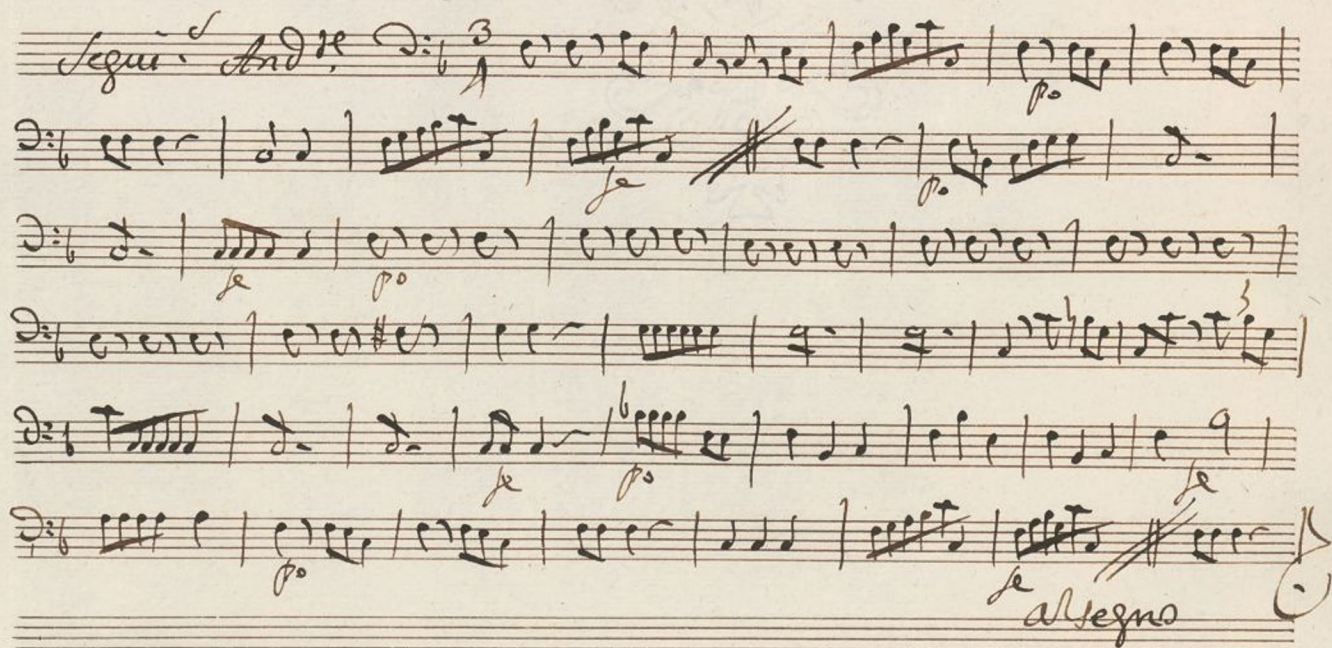 Segui.s And.te 3
po
fe po
fe po
3
fe po fe
po fe
al segno